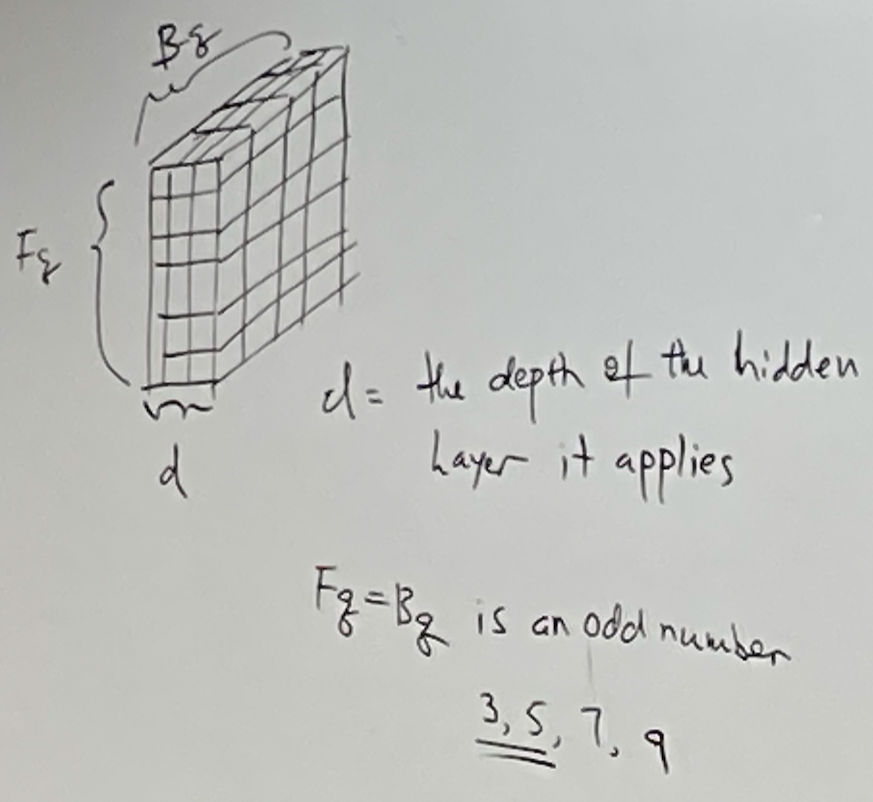 B8
F8
d
d = the depth of the hidden
Layer it applies
F8=B8 is an odd number
3, 5, 7, 9